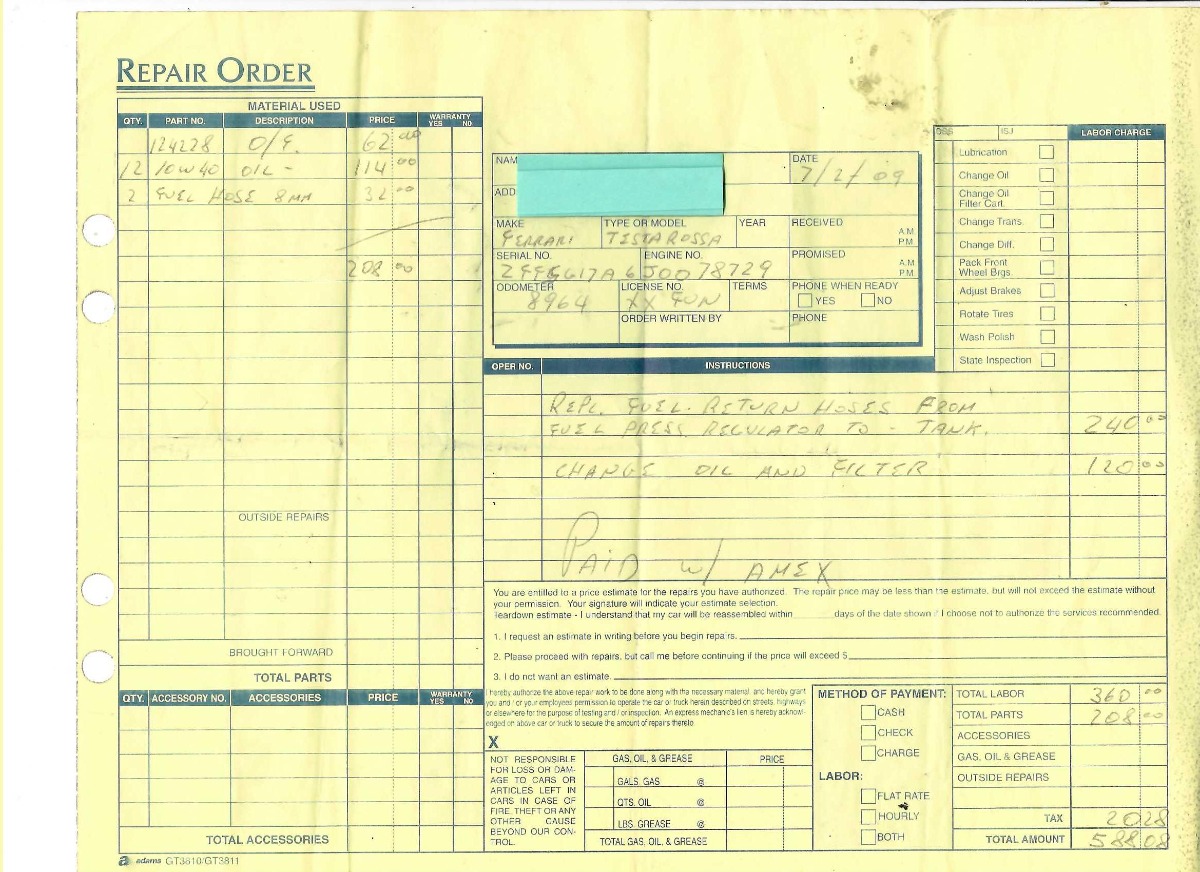 REPAIR ORDER
MATERIAL USED
QTY. PART NO. DESCRIPTION PRICE WARRANTY YES NO
124228 O/F. 62 00
12 10W40 OIL - 114 00
2 FUEL HOSE 8MM 32 00
208 00
OUTSIDE REPAIRS
BROUGHT FORWARD
TOTAL PARTS
QTY. ACCESSORY NO. ACCESSORIES PRICE WARRANTY YES NO
TOTAL ACCESSORIES
adams GT3810/GT3811
NAM
ADD
DATE
7/2/09
MAKE TYPE OR MODEL YEAR RECEIVED
FERRARI TESTAROSSA A.M
P.M.
SERIAL NO. ENGINE NO. PROMISED
A.M
P.M.
ODOMETER LICENSE NO. TERMS PHONE WHEN READY
8964 XX FUN YES NO
ORDER WRITTEN BY PHONE
LABOR CHARGE
Lubrication
Change Oil
Change Oil
Filter Cart.
Change Trans.
Change Diff.
Pack Front
Wheel Brgs.
Adjust Brakes
Rotate Tires
Wash Polish
State Inspection
OPER NO. INSTRUCTIONS
REPL. FUEL RETURN HOSES FROM
FUEL PRESS REGULATOR TO - TANK. 240 00
CHANGE OIL AND FILTER 120 00
PAID W/ AMEX
You are entitled to a price estimate for the repairs you have authorized. The repair price may be less than the estimate, but will not exceed the estimate without
your permission. Your signature will indicate your estimate selection.
Teardown estimate - I understand that my car will be reassembled within ______ days of the date shown if I choose not to authorize the services recommended.
1. I request an estimate in writing before you begin repairs.
2. Please proceed with repairs, but call me before continuing if the price will exceed $
3. I do not want an estimate.
I hereby authorize the above repair work to be done along with the necessary material, and hereby grant
you and / or your employees permission to operate the car or truck herein described on streets, highways
or elsewhere for the purpose of testing and / or inspection. An express mechanic's lien is hereby acknowl-
edged on above car or truck to secure the amount of repairs thereto.
X
NOT RESPONSIBLE
FOR LOSS OR DAM-
AGE TO CARS OR
ARTICLES LEFT IN
CARS IN CASE OF
FIRE THEFT OR ANY
OTHER CAUSE
BEYOND OUR CON-
TROL.
GAS, OIL, & GREASE PRICE
GALS. GAS @
QTS. OIL @
LBS. GREASE @
TOTAL GAS, OIL, & GREASE
METHOD OF PAYMENT:
CASH
CHECK
CHARGE
LABOR:
FLAT RATE
HOURLY
BOTH
TOTAL LABOR 360 00
TOTAL PARTS 208 00
ACCESSORIES
GAS, OIL & GREASE
OUTSIDE REPAIRS
TAX 20 28
TOTAL AMOUNT 588 08